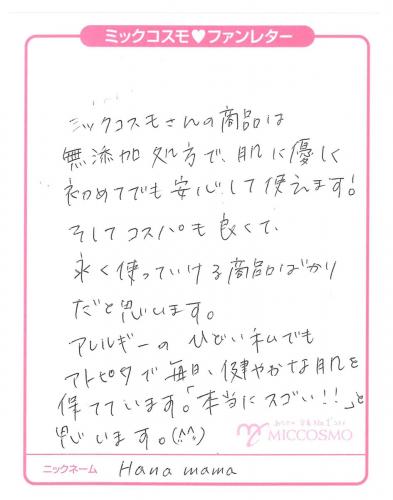 ミックコスモ♥ファンレター
ミックコスモさんの商品は
無添加処方で、肌に優しく
初めてでも安心して使えます!
そしてコスパも良くて、
永く使っていける商品ばかり
だと思います。
アレルギーのひどい私でも
アトピタで毎日、健やかな肌を
保てています。「本当にスゴい!!」と
思います。(^^)
MICCOSMO
ニックネーム Hana mama